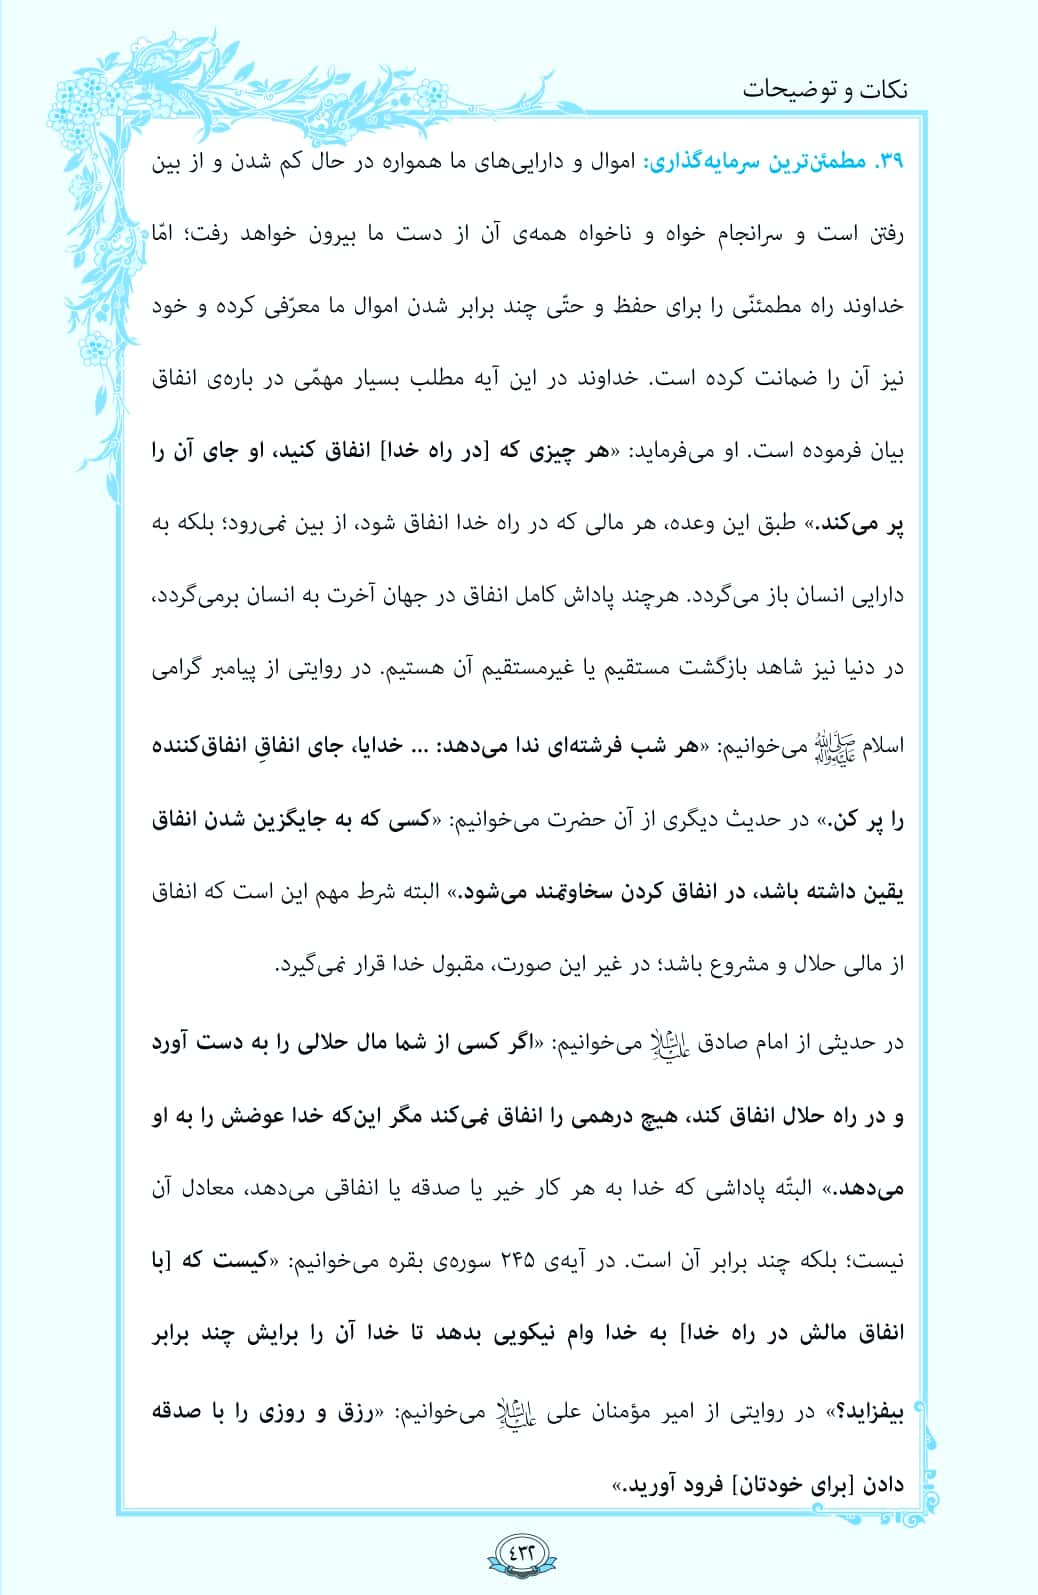 نکات و توضیحات
۳۹. مطمئن‌ترین سرمایه‌گذاری: اموال و دارایی‌های ما همواره در حال کم شدن و از بین
رفتن است و سرانجام خواه و ناخواه همه‌ی آن از دست ما بیرون خواهد رفت؛ امّا
خداوند راه مطمئنّی را برای حفظ و حتّی چند برابر شدن اموال ما معرّفی کرده و خود
نیز آن را ضمانت کرده است. خداوند در این آیه مطلب بسیار مهمّی در باره‌ی انفاق
بیان فرموده است. او می‌فرماید: «هر چیزی که [در راه خدا] انفاق کنید، او جای آن را
پر می‌کند.» طبق این وعده، هر مالی که در راه خدا انفاق شود، از بین نمی‌رود؛ بلکه به
دارایی انسان باز می‌گردد. هرچند پاداش کامل انفاق در جهان آخرت به انسان برمی‌گردد،
در دنیا نیز شاهد بازگشت مستقیم یا غیرمستقیم آن هستیم. در روایتی از پیامبر گرامی
اسلام صَلَّی‌اللهُ‌عَلَیْهِ‌وَآلِه می‌خوانیم: «هر شب فرشته‌ای ندا می‌دهد: ... خدایا، جای انفاقِ انفاق‌کننده
را پر کن.» در حدیث دیگری از آن حضرت می‌خوانیم: «کسی که به جایگزین شدن انفاق
یقین داشته باشد، در انفاق کردن سخاوتمند می‌شود.» البته شرط مهم این است که انفاق
از مالی حلال و مشروع باشد؛ در غیر این صورت، مقبول خدا قرار نمی‌گیرد.
در حدیثی از امام صادق عَلَیْهِ‌السَّلام می‌خوانیم: «اگر کسی از شما مال حلالی را به دست آورد
و در راه حلال انفاق کند، هیچ درهمی را انفاق نمی‌کند مگر این‌که خدا عوضش را به او
می‌دهد.» البتّه پاداشی که خدا به هر کار خیر یا صدقه یا انفاقی می‌دهد، معادل آن
نیست؛ بلکه چند برابر آن است. در آیه‌ی ۲۴۵ سوره‌ی بقره می‌خوانیم: «کیست که [با
انفاق مالش در راه خدا] به خدا وام نیکویی بدهد تا خدا آن را برایش چند برابر
بیفزاید؟» در روایتی از امیر مؤمنان علی عَلَیْهِ‌السَّلام می‌خوانیم: «رزق و روزی را با صدقه
دادن [برای خودتان] فرود آورید.»
۴۳۲